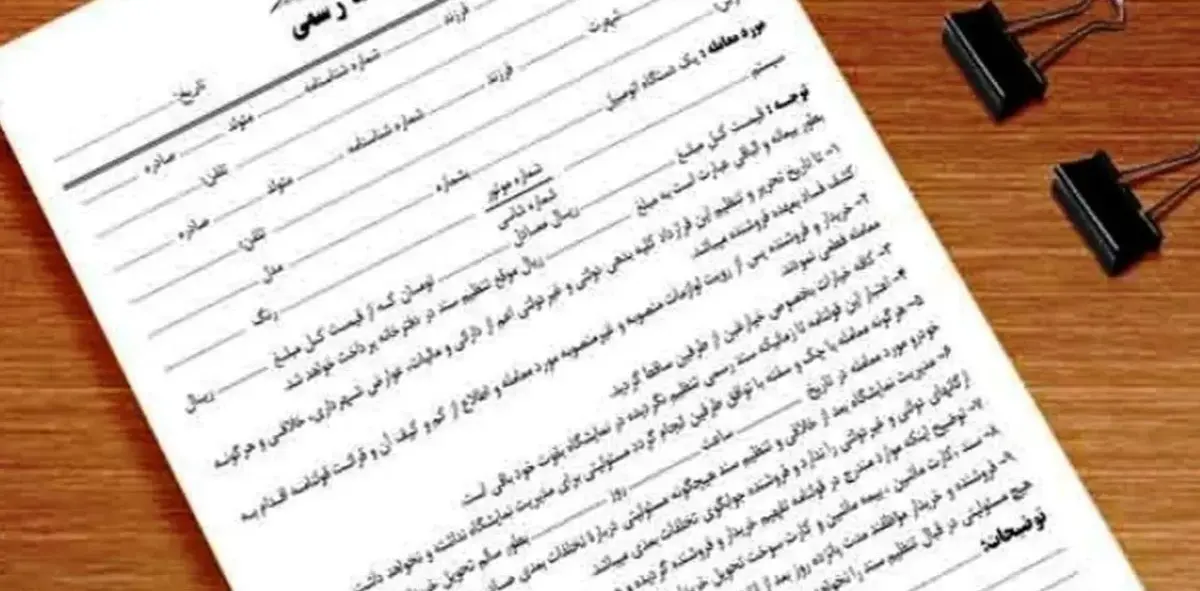 رسمی
تاریخ:
فرزند شماره شناسنامه متولد صادره تلفن:
شهرت فرزند شماره شناسنامه متولد صادره تلفن:
مورد معامله: یک دستگاه اتومبیل بشماره مدل
سیستم شماره موتور رنگ
شماره شاسی
توجه: قیمت کل مبلغ ریال معادل تومان که از قیمت کل مبلغ ریال
بطور بیعانه و الباقی عبارت است به مبلغ ریال موقع تنظیم سند در دفترخانه پرداخت خواهد شد.
۱- تا تاریخ تحریر و تنظیم این قرارداد کلیه بدهی دولتی و غیر دولتی اعم از دارائی و مالیات، عوارض شهرداری، خلافی و هرگونه
کشف فساد بعهده فروشنده میباشد.
۲- خریدار و فروشنده پس از رویت لوازمات منصوبه و غیر منصوبه مورد معامله و اطلاع از کم و کیف آن و قرائت قولنامه اقدام به
معامله قطعی نمودند
۳- کافه خیارات بخصوص خیار غبن از طرفین ساقط گردید.
۴- اعتبار این قولنامه تا زمانیکه سند رسمی تنظیم نگردیده در نمایشگاه بقوت خود باقی است.
۵- هرگونه معامله با چک و سفته با توافق طرفین انجام گردد مسئولیتی برای مدیریت نمایشگاه نداشته و نخواهد داشت.
خودرو مورد معامله در تاریخ ساعت روز بطور سالم تحویل
۶- مدیریت نمایشگاه بعد از خلافی و تنظیم سند هیچگونه مسئولیتی درباره تخلفات بعدی
ارگانهای دولتی و غیر دولتی را ندارد و فروشنده جوابگوی تخلفات بعدی میباشد.
۷- توضیح اینکه موارد مندرج در قولنامه تفهیم خریدار و فروشنده گردیده و
۸- سند، کارت ماشین، بیمه ماشین و کارت سوخت تحویل
۹- فروشنده و خریدار موظفند مدت پانزده روز بعد از
هیچ مسئولیتی در قبال تنظیم سند را
توضیحات: